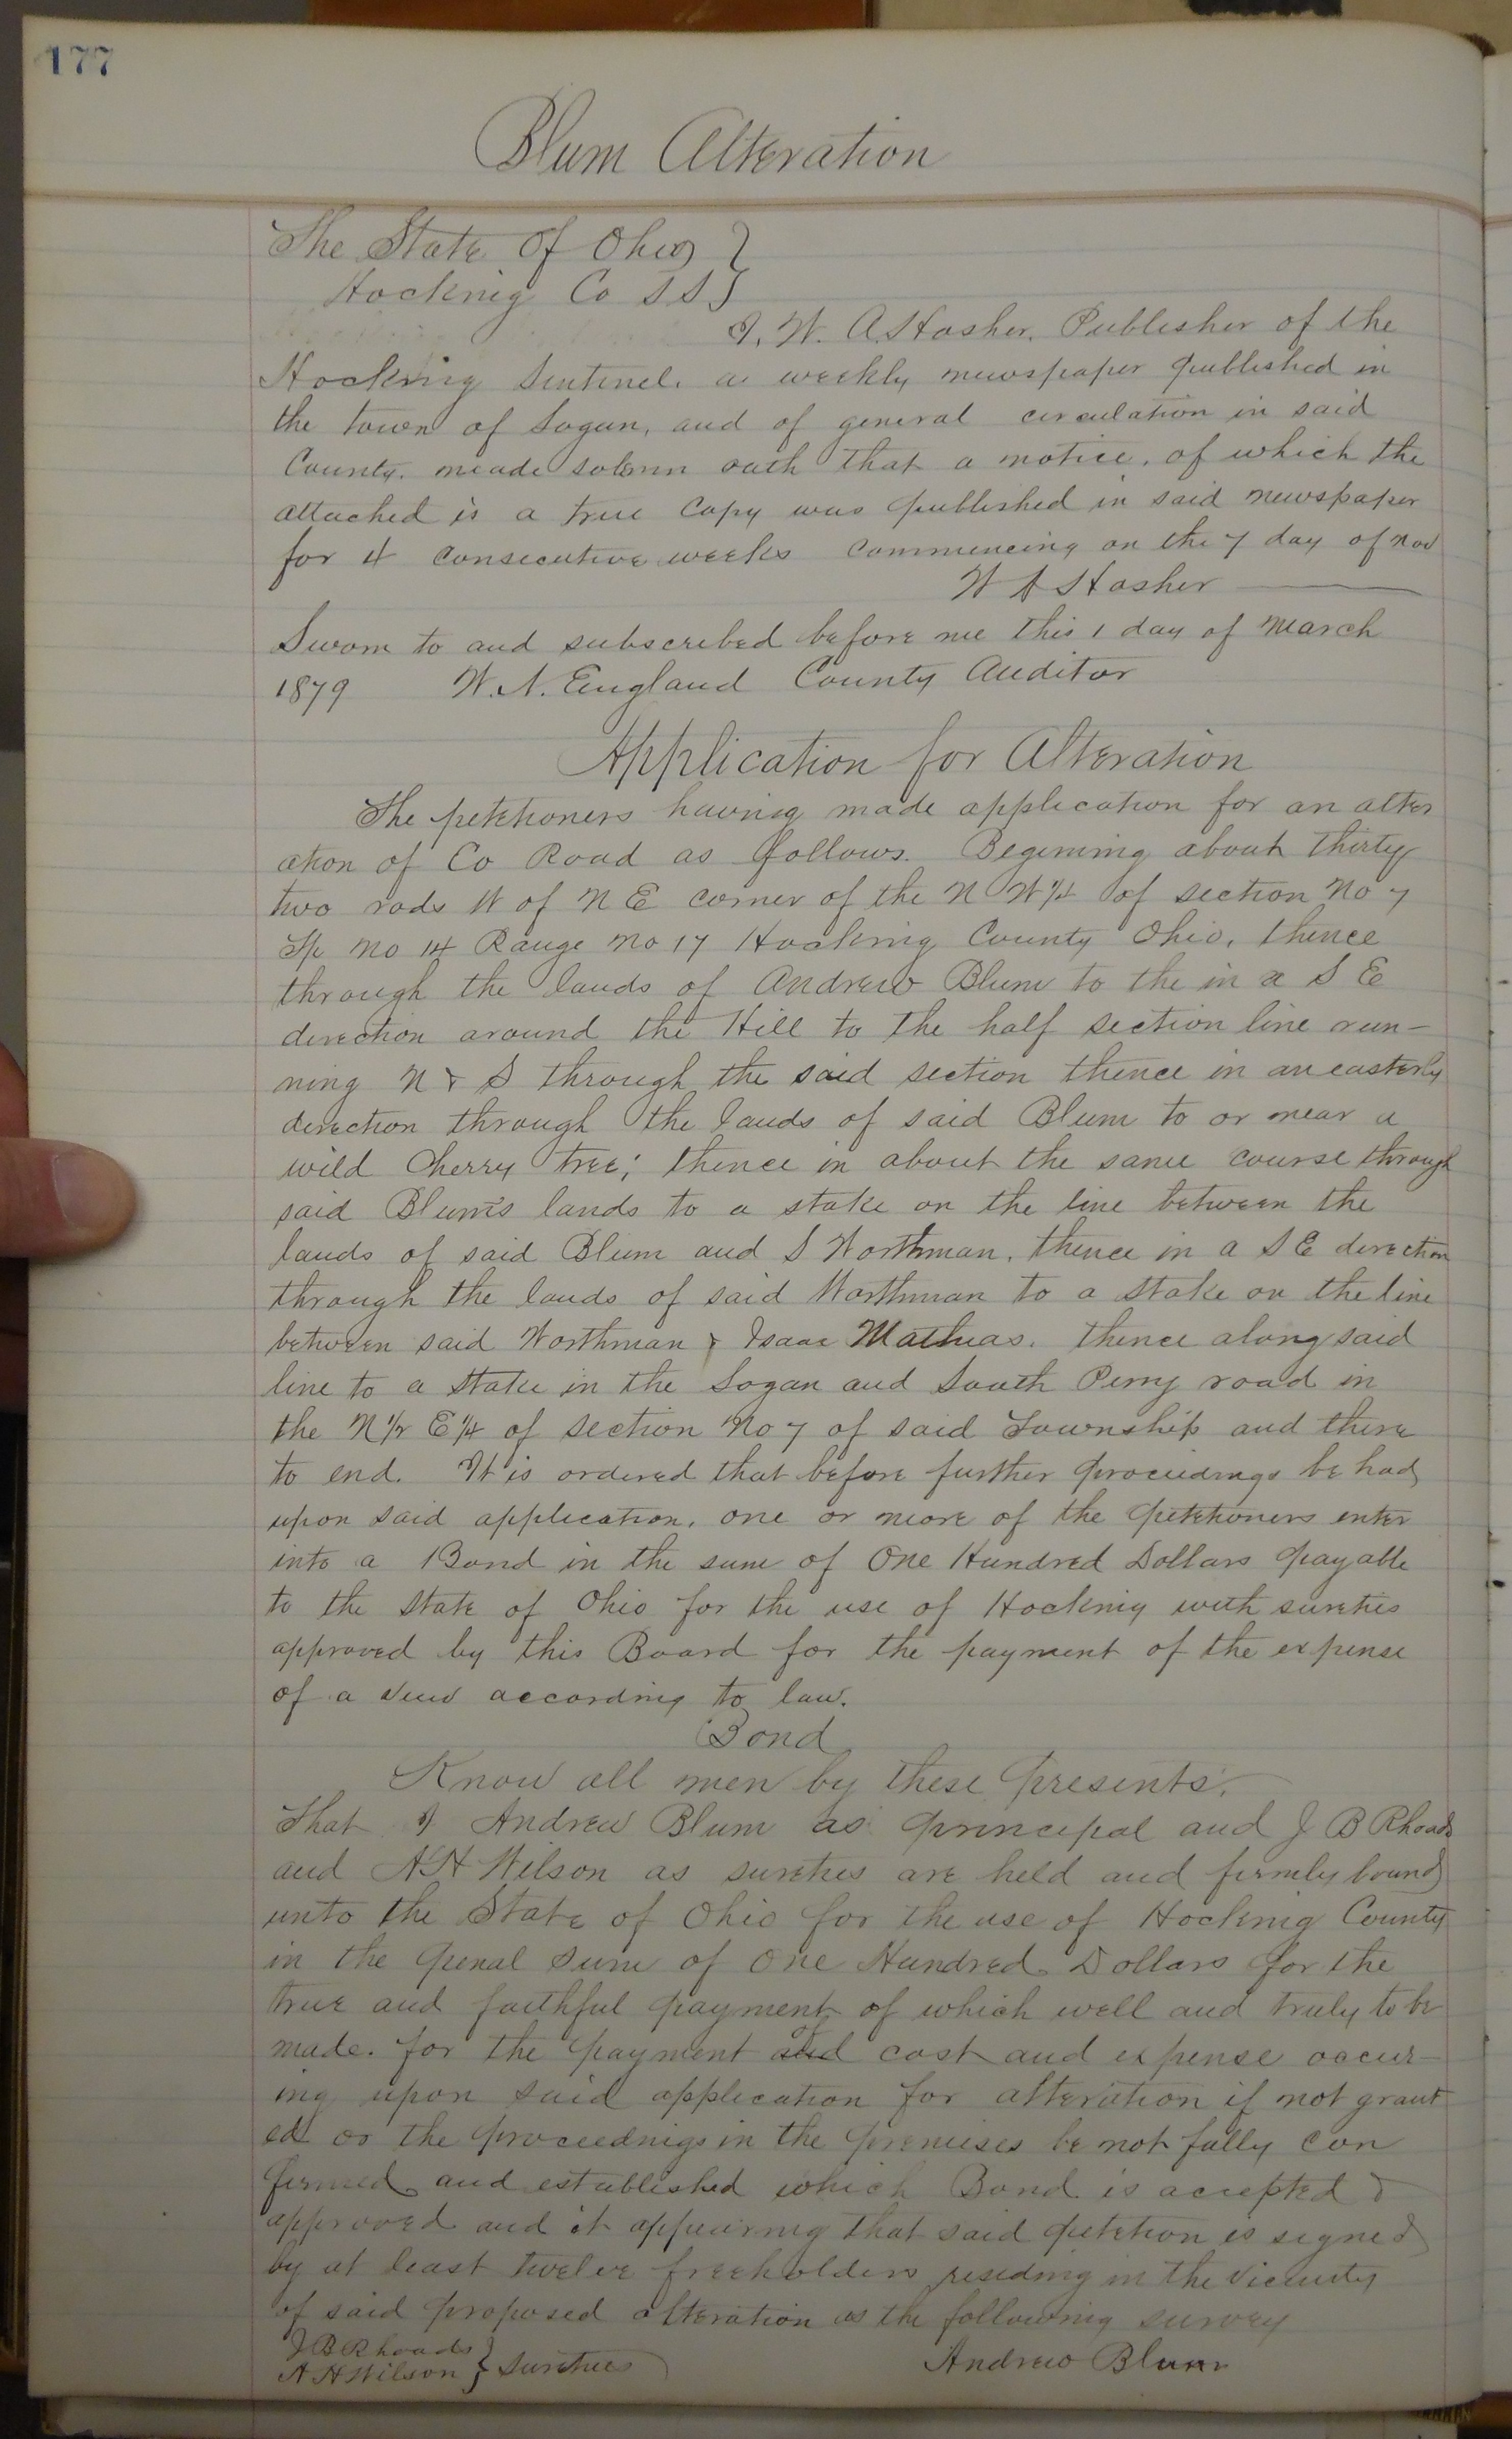 177
Blum Alteration
The State of Ohio }
Hocking Co SS }
I, W. A. Hasher, Publisher of the
Hocking Sentinel. a weekly newspaper published in
the town of Logan, and of general circulation in said
County. made solemn oath that a notice, of which the
attached is a true Copy was published in said newspaper
for 4 consecutive weeks commencing on the 7 day of nov
W A Hasher
Sworn to and subscribed before me this 1 day of March
1879 W. N. England County Auditor
Application for Alteration
The petitioners having made application for an alter
ation of Co Road as follows. Begining about thirty
two rods W of N E corner of the N W 1/4 of section No 7
Tp No 14 Range No 17 Hocking County Ohio, thence
through the lands of Andrew Blum to the in a S E
direction around the Hill to the half section line run-
ning N & S through the said section thence in an easterly
direction through the lands of said Blum to or near a
wild Cherry tree; thence in about the same course through
said Blum's lands to a stake on the line between the
lands of said Blum and S Worthman, thence in a S E direction
through the lands of said Worthman to a stake on the line
between said Worthman & Isaac Mathias. thence along said
line to a stake in the Logan and South Perry road in
the N 1/2 E 1/4 of section No 7 of said Township and there
to end. It is ordered that before further proceedings be had
upon said application, one or more of the petitioners enter
into a Bond in the sum of One Hundred Dollars payable
to the State of Ohio for the use of Hocking with sureties
approved by this Board for the payment of the expense
of a view according to law.
Bond
Know all men by these presents,
That I Andrew Blum as principal and J B Rhoads
and A H Wilson as sureties are held and firmly bound
unto the State of Ohio for the use of Hocking County
in the penal sum of One Hundred Dollars for the
true and faithful payment of which well and truly to be
made. for the payment of cost and expense occur-
ing upon said application for alteration if not grant
ed or the proceedings in the premises be not fully con
firmed and established which Bond is accepted &
approved and it appearing that said petition is signed
by at least twelve freeholders residing in the vicinity
of said proposed alteration as the following survey
J B Rhoads }
A H Wilson } Sureties Andrew Blum